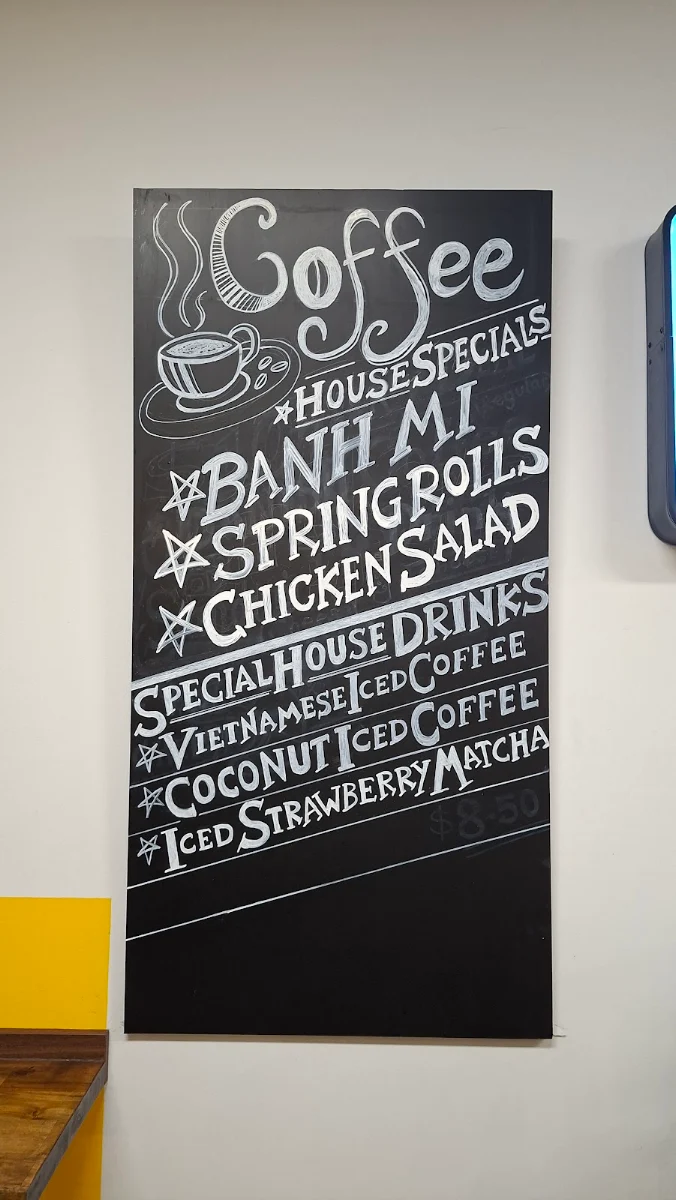 Coffee
HOUSE SPECIALS
BANH MI
SPRING ROLLS
CHICKEN SALAD
SPECIAL HOUSE DRINKS
VIETNAMESE ICED COFFEE
COCONUT ICED COFFEE
ICED STRAWBERRY MATCHA
$8.50